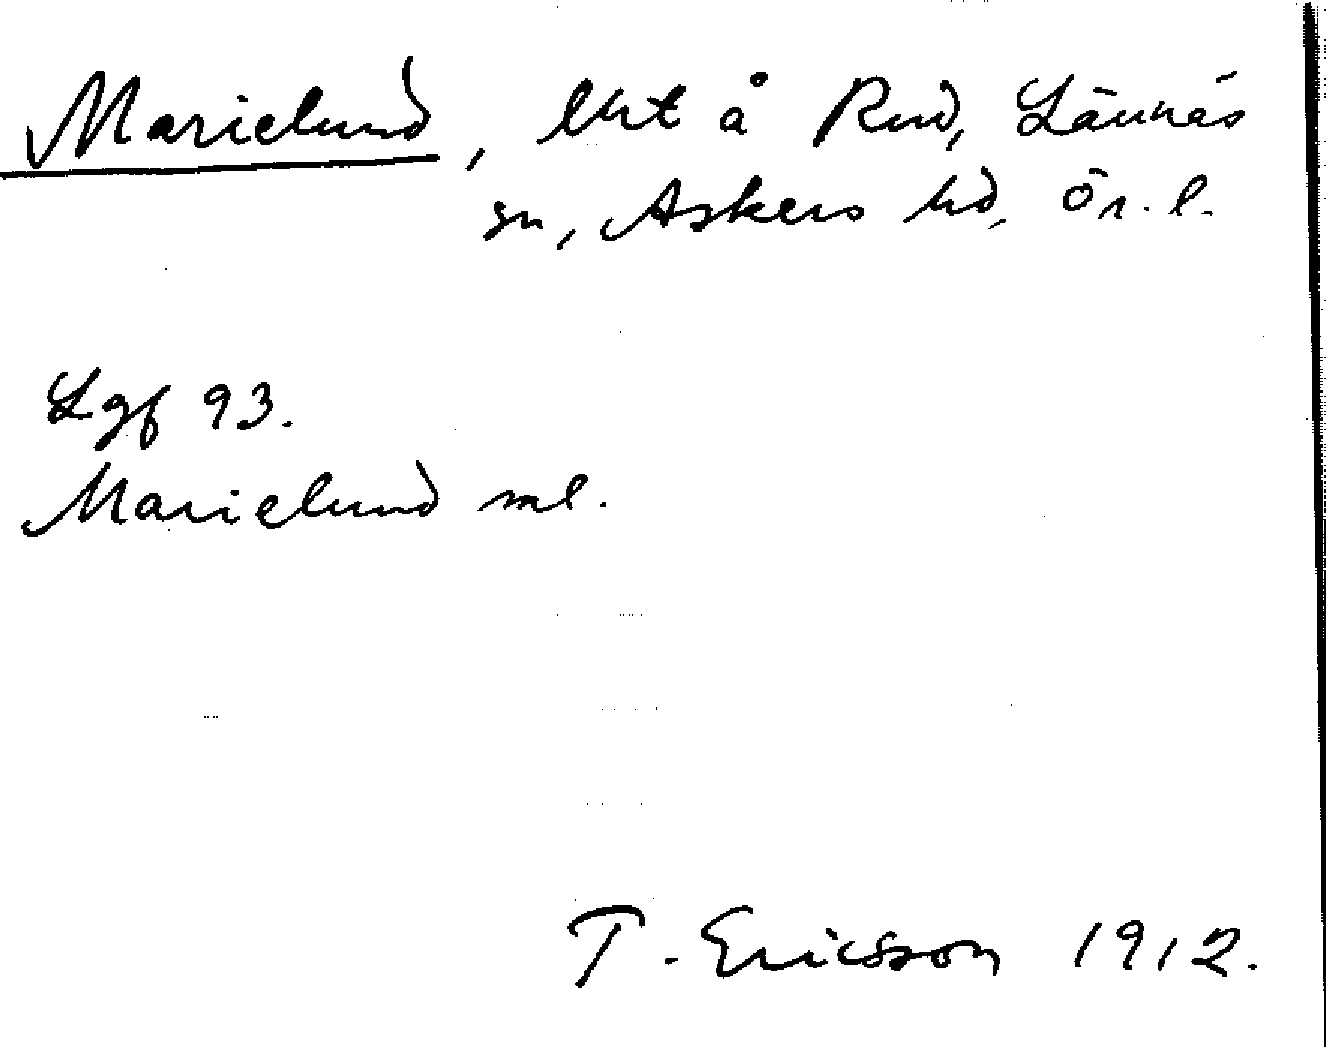 Marielund, lht å Rud, Lännäs
sn, Askers hd, Ör. l.
Lgf 93.
Marielund ml.
T. Ericsson 1912.